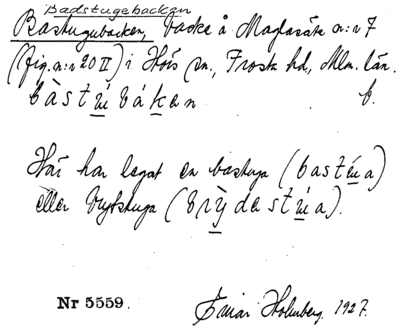 Badstugebacken
Bastugubacken, backe å Maglasäte n:r 7
(fig. n:r 20 II) i Hörs sn., Frosta hd, Mlm. län.
bàstúbákan f.
Här har legat en bastuga (bastúa)
eller brytstuga (brỳdastúa).
Nr 5559. Einar Holmberg. 1927.